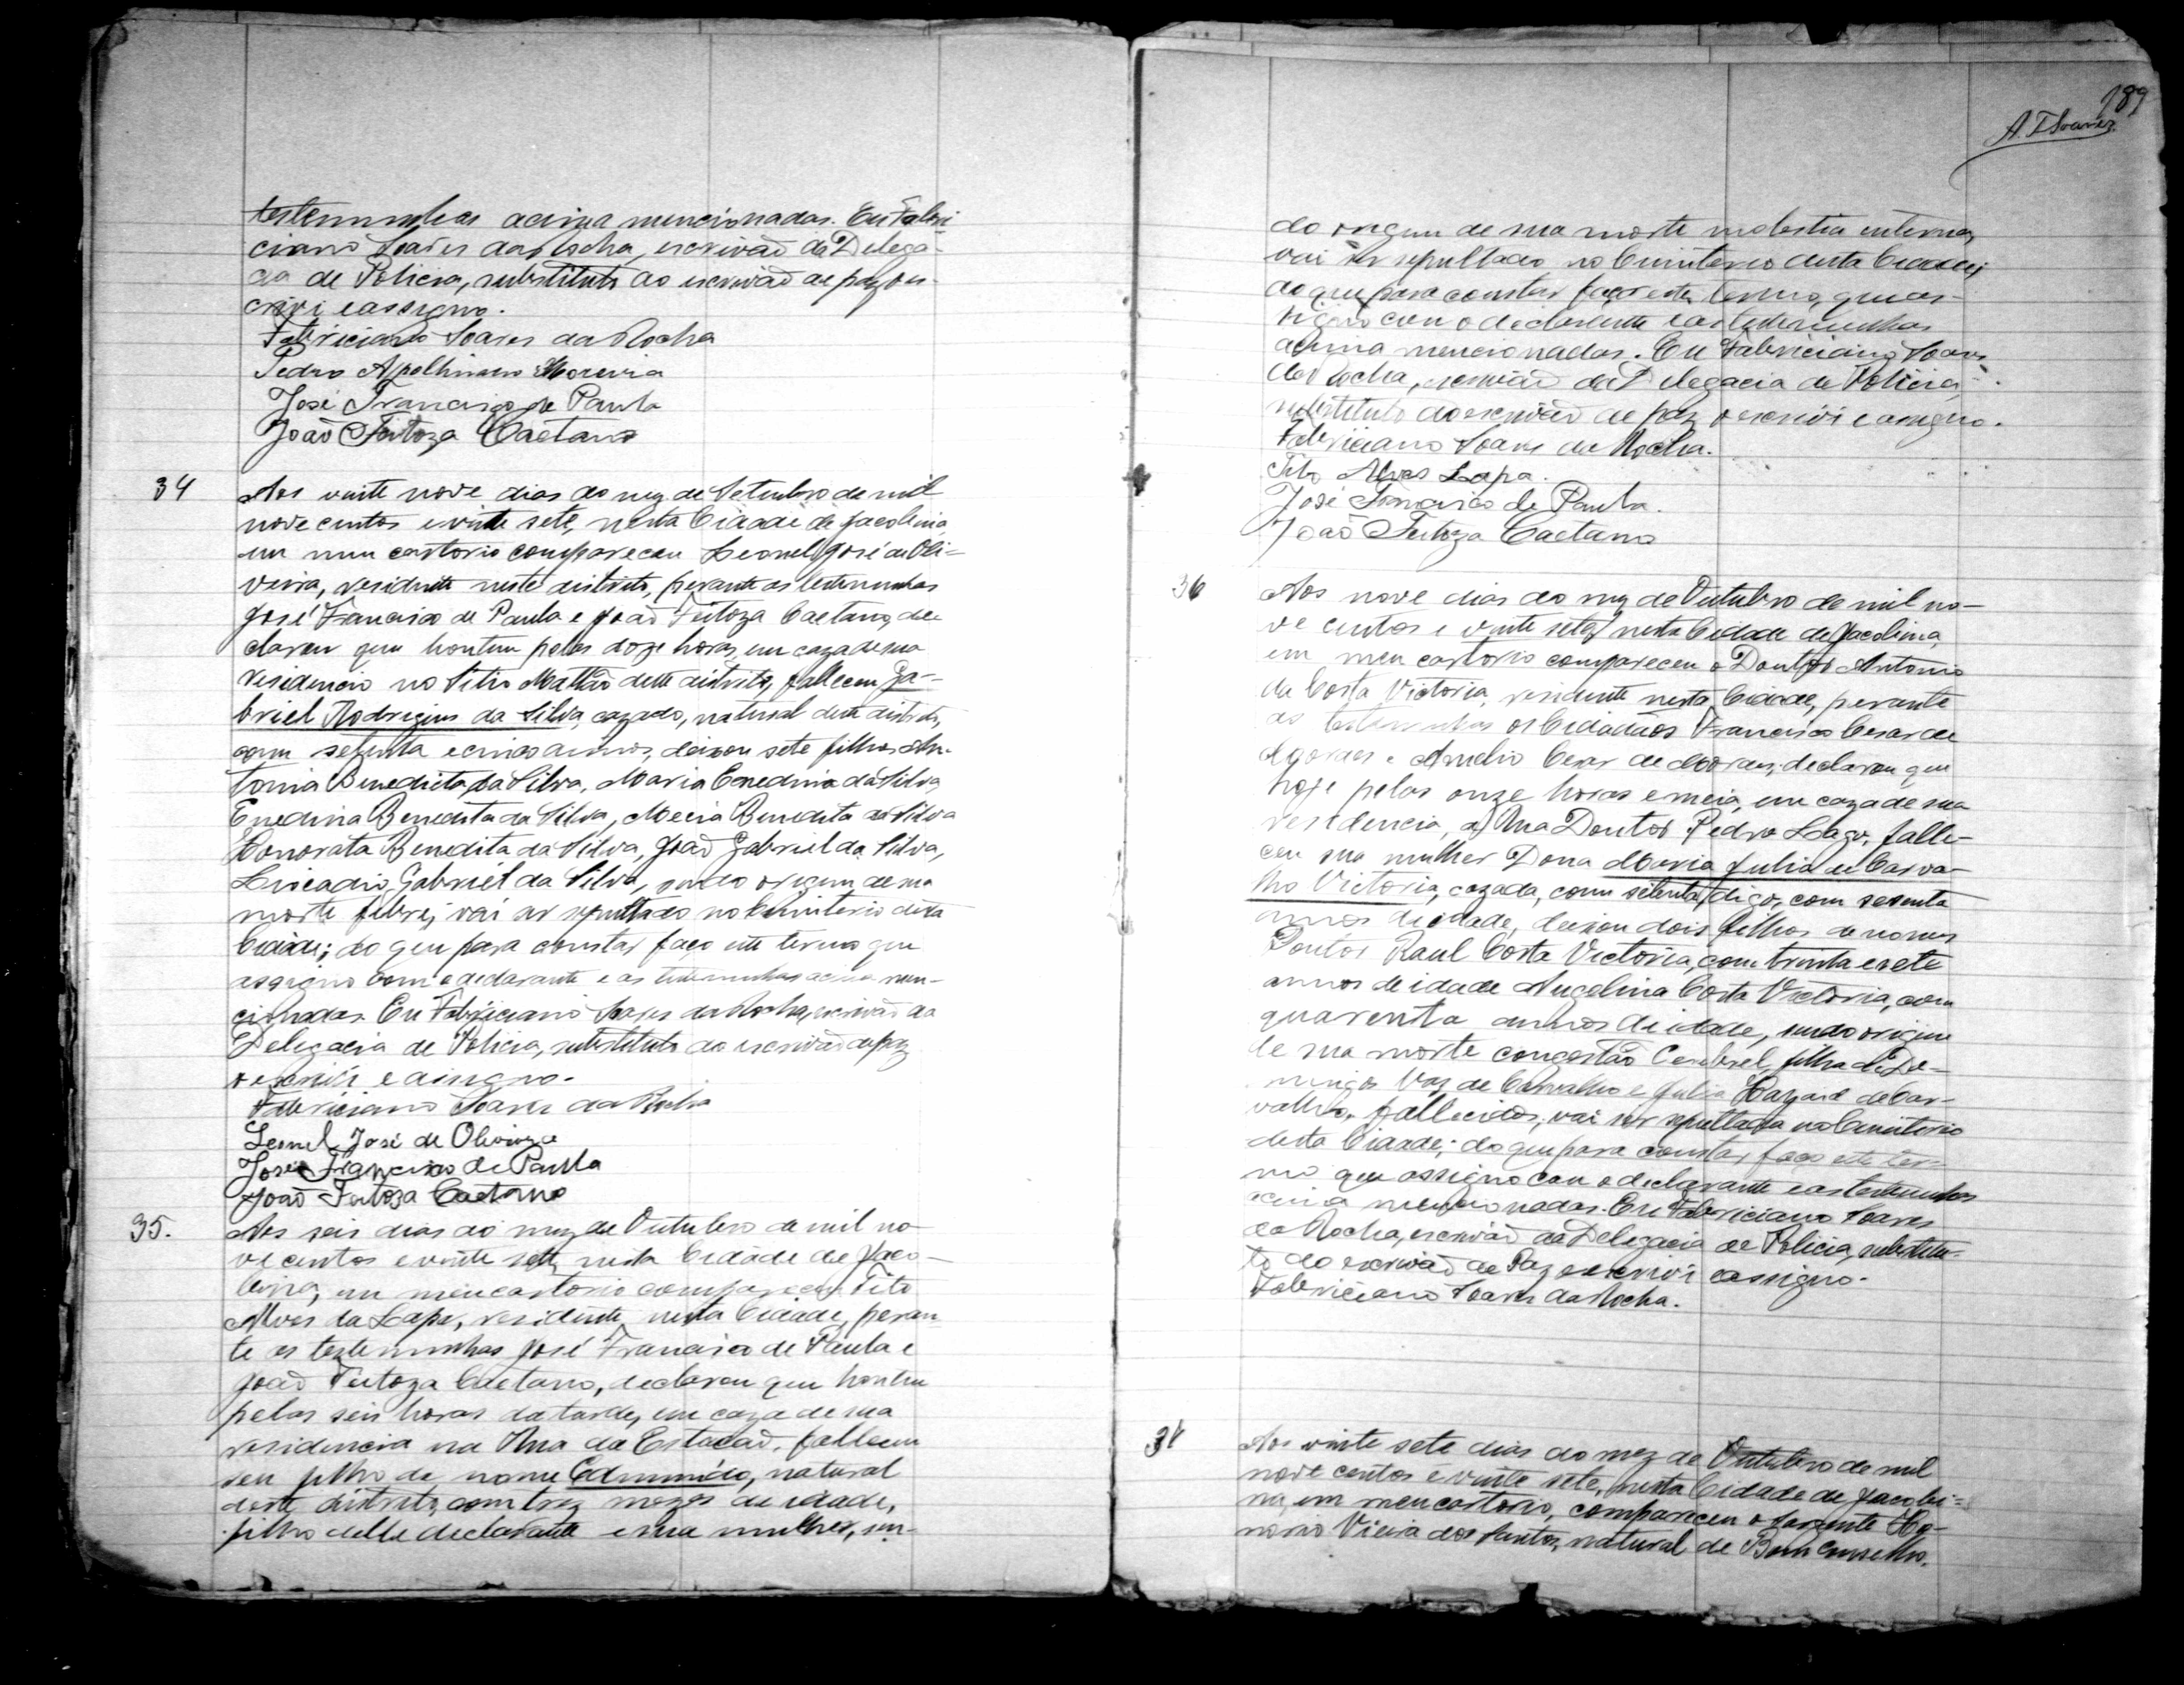 testemunhas acima mencionadas. Eu Fabri
ciano Soares da Rocha, escrivaõ da Delega-
cia de Policia, substituto do escrivaõ de paz o es-
crivi e assigno.
Fabriciano Soares da Rocha
Pedro Apolhinario Moreira
José Francisco de Paula
Joaõ Feitoza Caetano
34 Aos vinte nove dias do mez de Setembro de mil
nove centos e vinte sete, nesta Cidade de Jacobina
em meu cartorio compareceu Leonel José de Oli=
veira, residente neste districto, perante as testemunhas
José Francisco de Paula e Joaõ Feitoza Caetano, de
clarou que hontem pelas doze horas, em caza de sua
residencia no Sitio Mattaõ deste districto, falleceu Ga-
briel Rodrigues da Silva, cazado, natural deste districto,
com setenta e cinco annos, deixou sete filhos An-
tonia Benedicta da Silva, Maria Enedina da Silva
Enedina Benedita da Silva, Benedita da Silva
Honorata Benedita da Silva, Joaõ Gabriel da Silva,
Liocadio Gabriel da Silva, sendo origem de sua
morte febre; vai ser sepultado no Cimiterio desta
Cidade; do que para constar faço este termo que
assigno com o declarante e as testemunhas acima men-
cionadas. Eu Fabriciano Soares da Rocha, escrivaõ da
Delegacia de Policia, substituto do escrivaõ de paz
o escrivi e assigno.
Fabriciano Soares da Rocha
Leonel José de Oliveira
José Francisco de Paula
Joaõ Feitoza Caetano
35. Aos seis dias do mez de Outubro de mil no-
ve centos e vinte sete, nesta Cidade de Jaco-
bina, em meu cartorio compareceu Tito
Alves da Lapa, residente nesta Cidade, peran-
te as testemunhas José Francisco de Paula e
Joaõ Feitoza Caetano, declarou que hontem
pelas seis horas da tarde, em caza de sua
residencia na Rua da Estacaõ, falleceu
seu filho de nome Edmundo, natural
deste districto, com trez mezes de idade,
filho delle declarante e sua mulher, sen-
189
A. T Soares
do origem de sua morte molestia interna,
vai ser sepultado no Cimiterio desta Cidade;
do que para constar faço este termo, que as-
signo com o declarante e as testemunhas
acima mencionadas. Eu Fabriciano Soares
da Rocha, escrivaõ da Delegacia de Policia,
substituto do escrivaõ de paz o escrivi e assigno.
Fabriciano Soares da Rocha.
Tito Alves Lapa.
José Francisco de Paula.
Joaõ Feitoza Caetano
36 Aos nove dias do mez de Outubro de mil no-
ve centos e vinte sete, nesta Cidade de Jacobina,
em meu cartorio compareceu o Doutor Antonio
da Costa Victoria, residente nesta Cidade, perante
as testemunhas os Cidadãos Francisco Cesar de
Moraes e Cesar de Moraes, declarou que
hoje pelas onze horas e meia, em caza de sua
residencia, a Rua Doutor Pedro Lago, falle-
ceu sua mulher Dona Maria Julia de Carva-
lho Victoria, cazada, com setenta, digo, com sesenta
annos de idade, deixou dois filhos de nomes
Doutor Raul Costa Victoria, com trinta e sete
annos de idade Angelina Costa Victoria, com
quarenta annos de idade, sendo origem
de sua morte congestão Cerebral, filha de Do-
mingos Vaz de Carvalho e Julia de Car-
valho, fallecidos; vai ser sepultada no Cimiterio
desta Cidade; do que para constar faço este ter-
mo que assigno com o declarante e as testemunhas
acima mencionadas. Eu Fabriciano Soares
da Rocha, escrivaõ da Delegacia de Policia, substitu-
to do escrivaõ de Paz o escrivi e assigno.
Fabriciano Soares da Rocha.
Aos vinte sete dias do mez de Outubro de mil
nove centos e vinte sete, nesta Cidade de Jacobi=
na, em meu cartorio, compareceu o Sargento Ho-
norio Vieira dos Santos, natural de Bom Conselho,